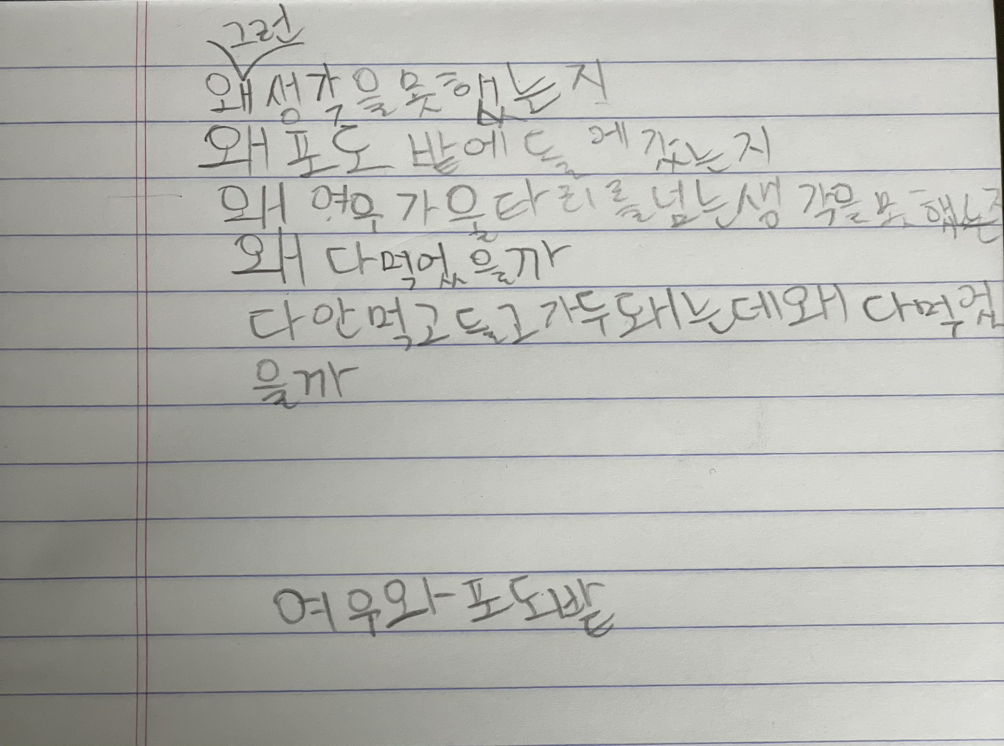 그런
왜 성각을 못했는지
왜 포도 밭에 들에 갔는지
왜 여우가 울타리를 넘는 생각을 못 했는지
왜 다먹었을까
다 안먹고 들고가두 돼는데 왜 다먹었
을까
여우와 포도밭